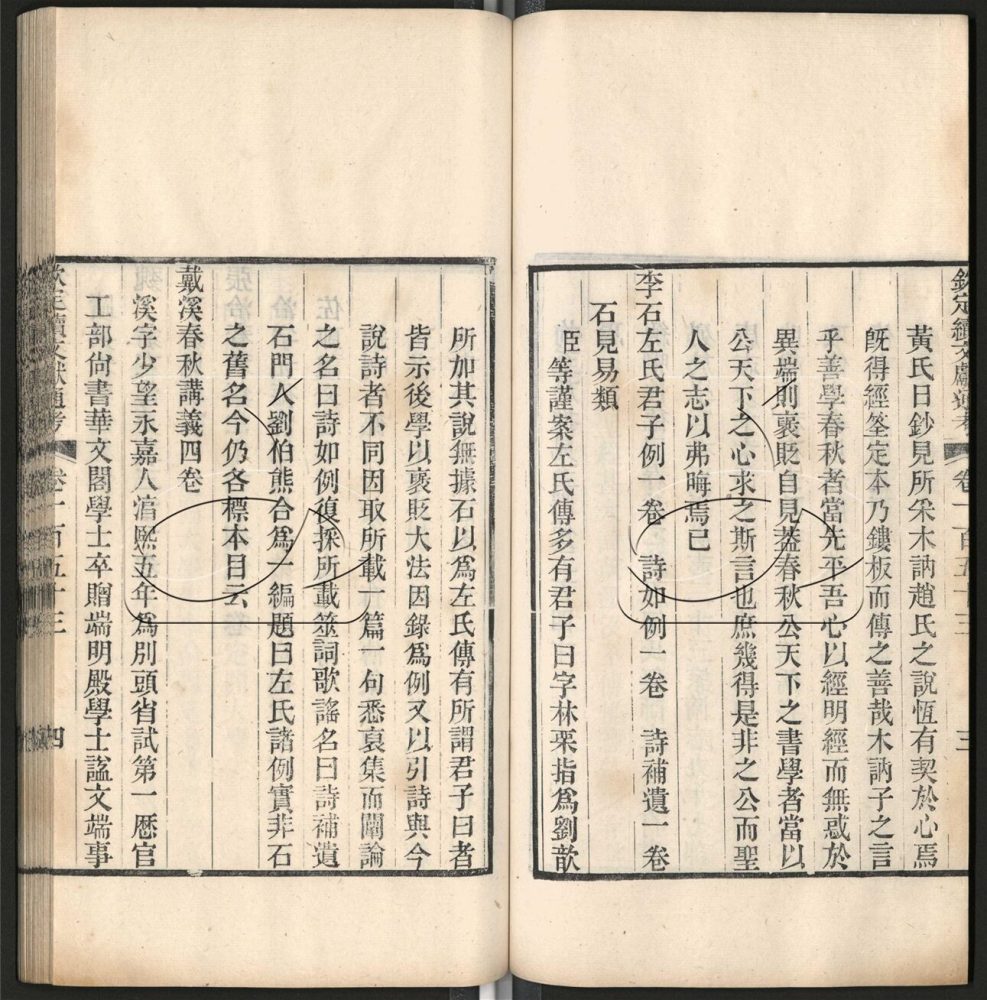 欽定續文獻通考 卷一百五十三 三
黃氏日鈔見所采木訥趙氏之說恆有契於心焉
旣得經筌定本乃鏤板而傳之善哉木訥子之言
乎善學春秋者當先平吾心以經明經而無惑於
異端則襃貶自見葢春秋公天下之書學者當以
公天下之心求之斯言也庶幾得是非之公而聖
人之志以弗晦焉已
李石左氏君子例一卷 詩如例一卷 詩補遺一卷
石見易類
臣等謹案左氏傳多有君子曰字林栗指爲劉歆
所加其說無據石以爲左氏傳有所謂君子曰者
皆示後學以襃貶大法因錄爲例又以引詩與今
說詩者不同因取所載一篇一句悉裒集而闡論
之名曰詩如例復採所載筮詞歌謠名曰詩補遺
石門人劉伯熊合爲一編題曰左氏諸例實非石
之舊名今仍各標本目云
戴溪春秋講義四卷
溪字少望永嘉人淳熙五年爲別頭省試第一歷官
工部尙書華文閣學士卒贈端明殿學士諡文端事
欽定續文獻通考 卷一百五十三 四